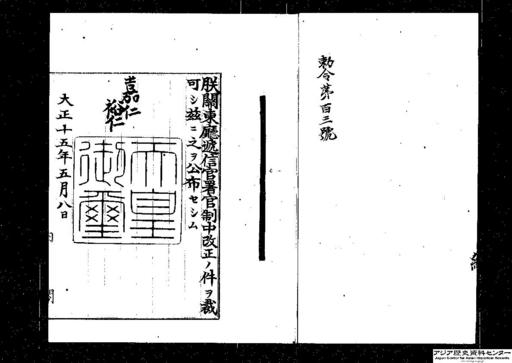 勅令第百三號
朕關東廳遞信官署官制中改正ノ件ヲ裁
可シ茲ニ之ヲ公布セシム
嘉仁
裕仁
天皇
御璽
大正十五年五月八日
内閣
アジア歴史資料センター
Japan Center for Asian Historical Records